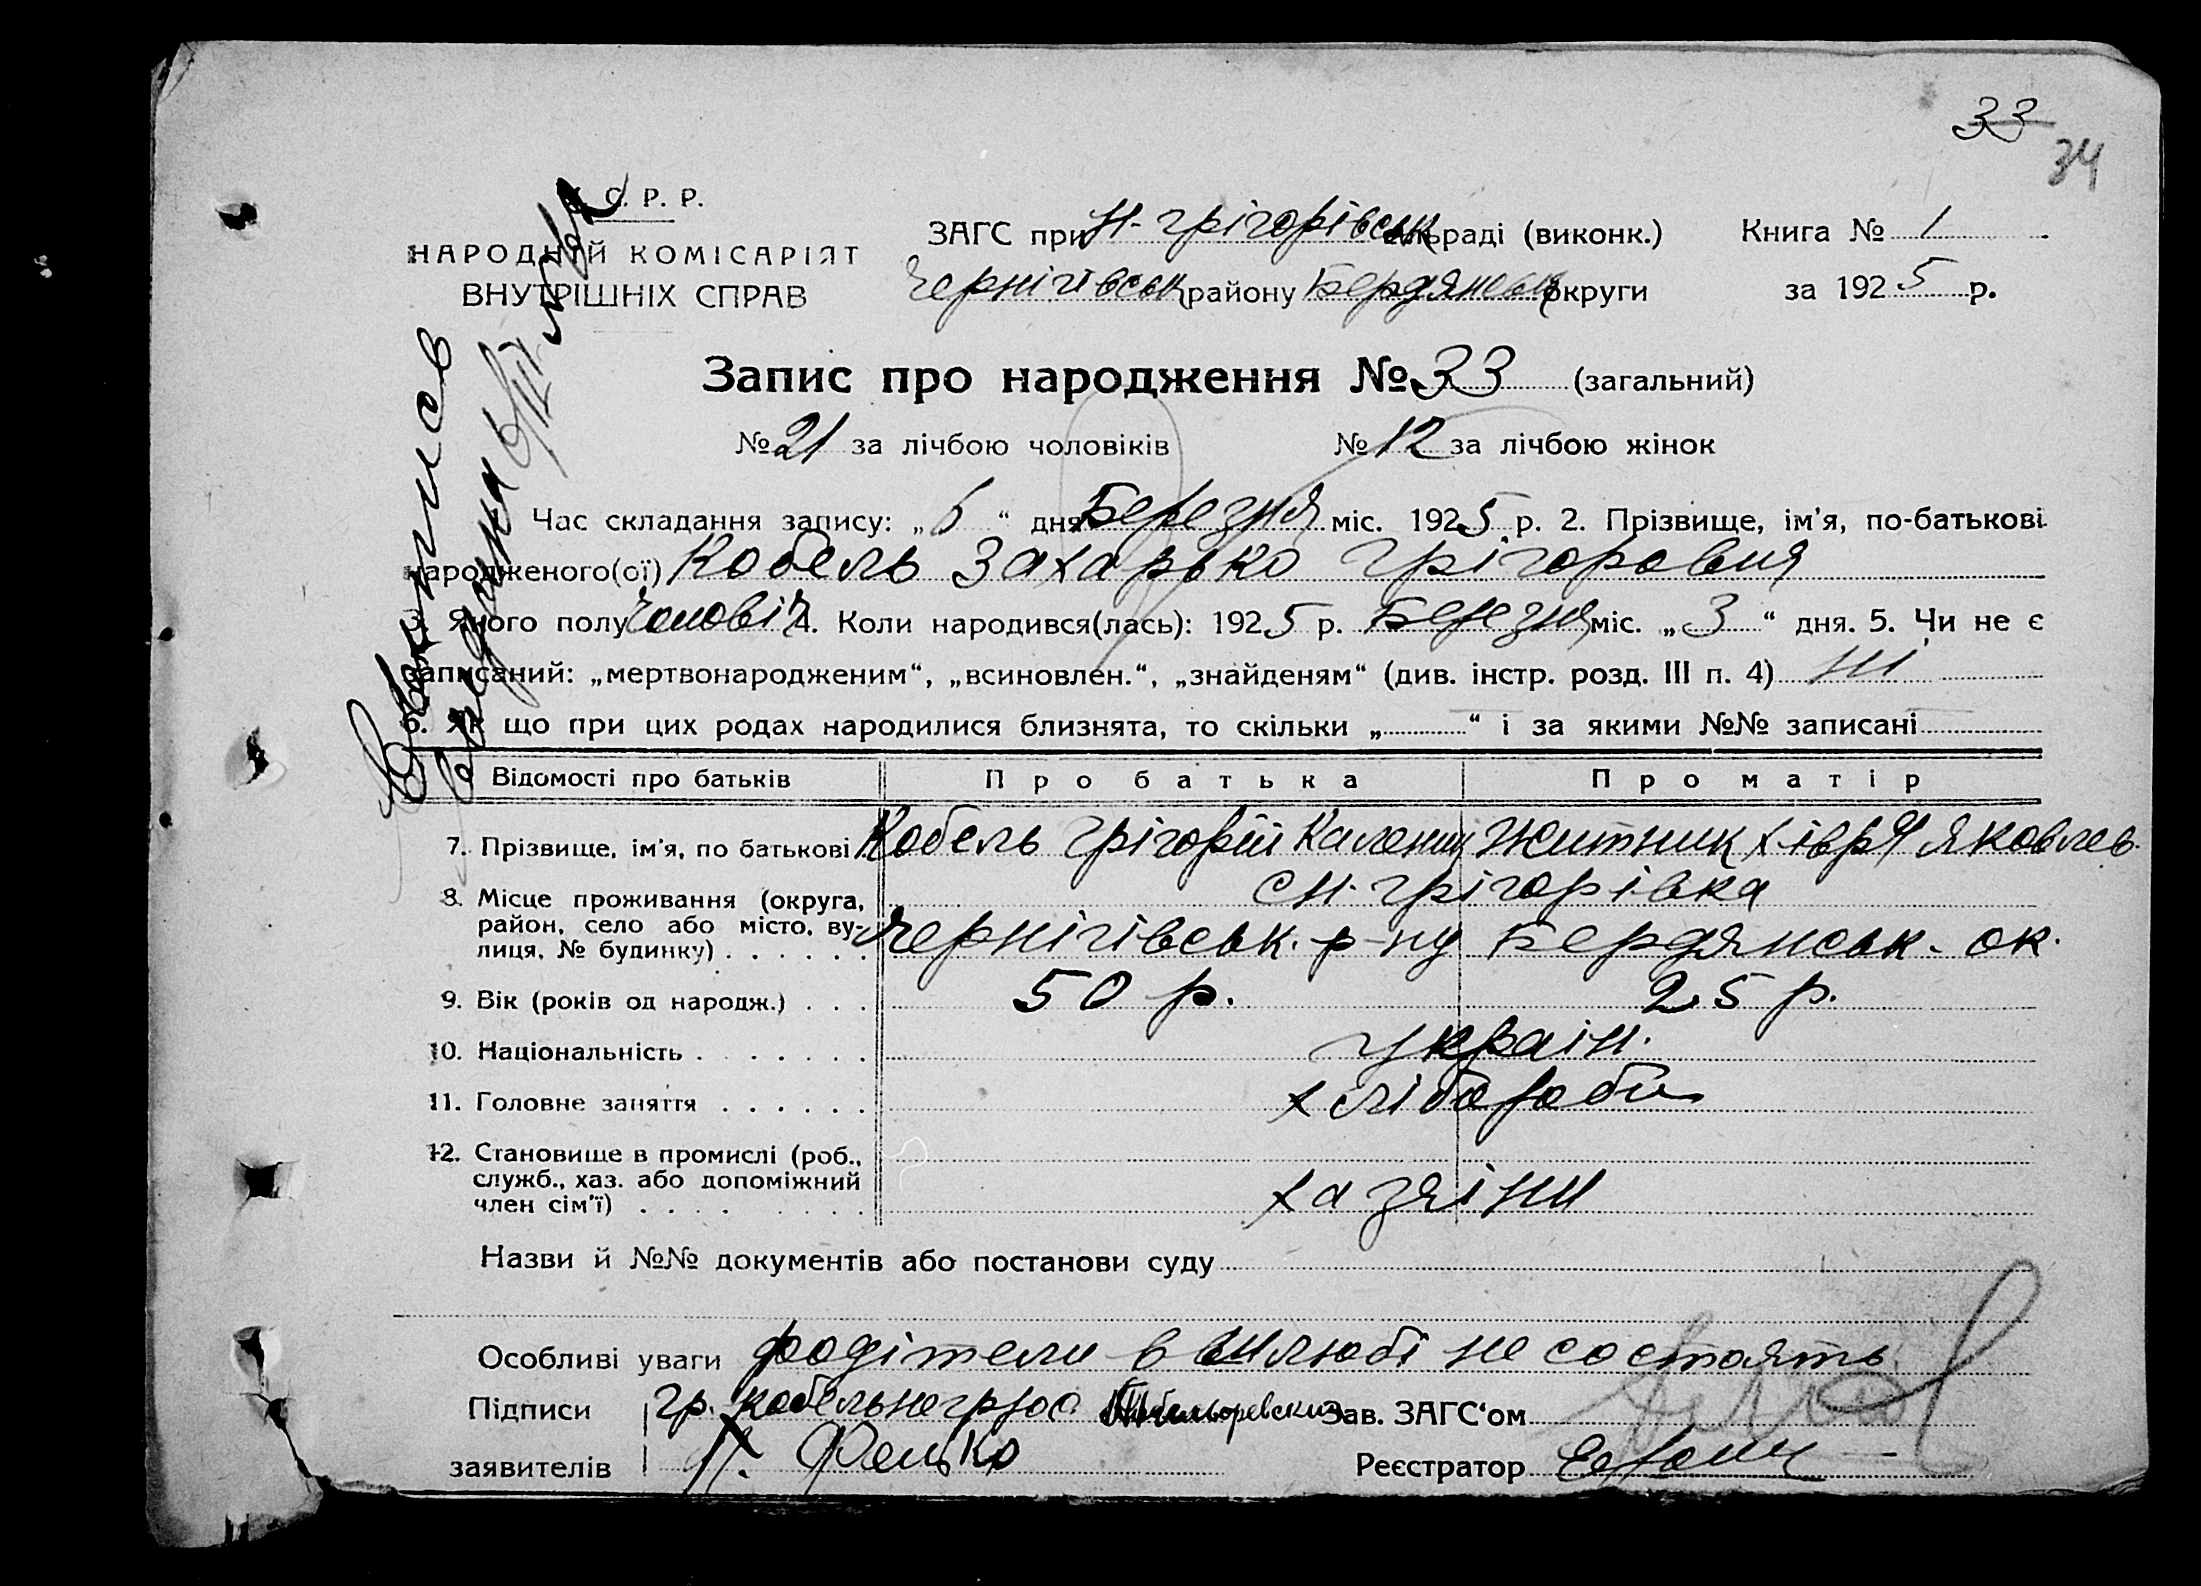 33
34
У. С. Р. Р.
НАРОДНІЙ КОМІСАРІЯТ
ВНУТРІШНІХ СПРАВ
ЗАГС при Н-Грігорівськ сільраді (виконк.)
Чернігівськ району Бердянськ округи
Книга № 1
за 1925 р.
Запис про народження № 33 (загальний)
№ 21 за лічбою чоловіків № 12 за лічбою жінок
Час складання запису: „6“ дня Березня міс. 1925 р. 2. Прізвище, ім'я, по-батькові
народженого(ої) Кобель Захарько Грігоровия
3. Якого полу Чоловіч 4. Коли народився(лась): 1925 р. Березня міс. „3“ дня. 5. Чи не є
записаний: „мертвонародженим“, „всиновлен.“, „знайденям“ (див. інстр. розд. III п. 4) ні
6. Як що при цих родах народилися близнята, то скільки „ “ і за якими №№ записані
Відомості про батьків Про батька Про матір
7. Прізвище, ім'я, по батькові Кобель Грігорій Калениц Житник Хівря Яковлев.
8. Місце проживання (округа, с Н-Грігорівка
район, село або місто, ву-
лиця, № будинку) . . . . . . Чернігівськ. р-ну Бердянськ. ок.
9. Вік (років од народж.) . . . 50 р. 25 р.
10. Національність . . . . . . . україн.
11. Головне заняття . . . . . . хлібороби
12. Становище в промислі (роб.,
служб., хаз. або допоміжний
член сім'ї) . . . . . . . . хазяіни
Назви й №№ документів або постанови суду
Особливі уваги родітели в шлюбі не состоять
Підписи гр. Зав. ЗАГС'ом
заявителів Реєстратор